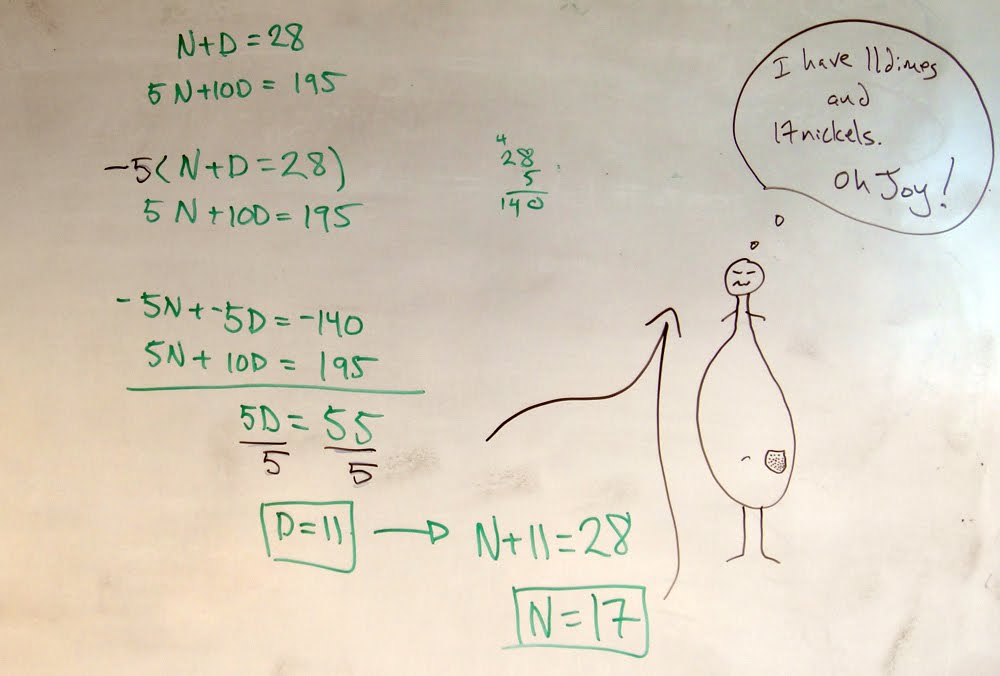 N+D=28
5N+10D= 195
-5(N+D=28)
5N+10D=195
4
28
5
140
-5N+-5D=-140
5N+10D= 195
5D= 55
5 5
D=11
N+11=28
N=17
I have 11 dimes
and
17 nickels.
Oh Joy!